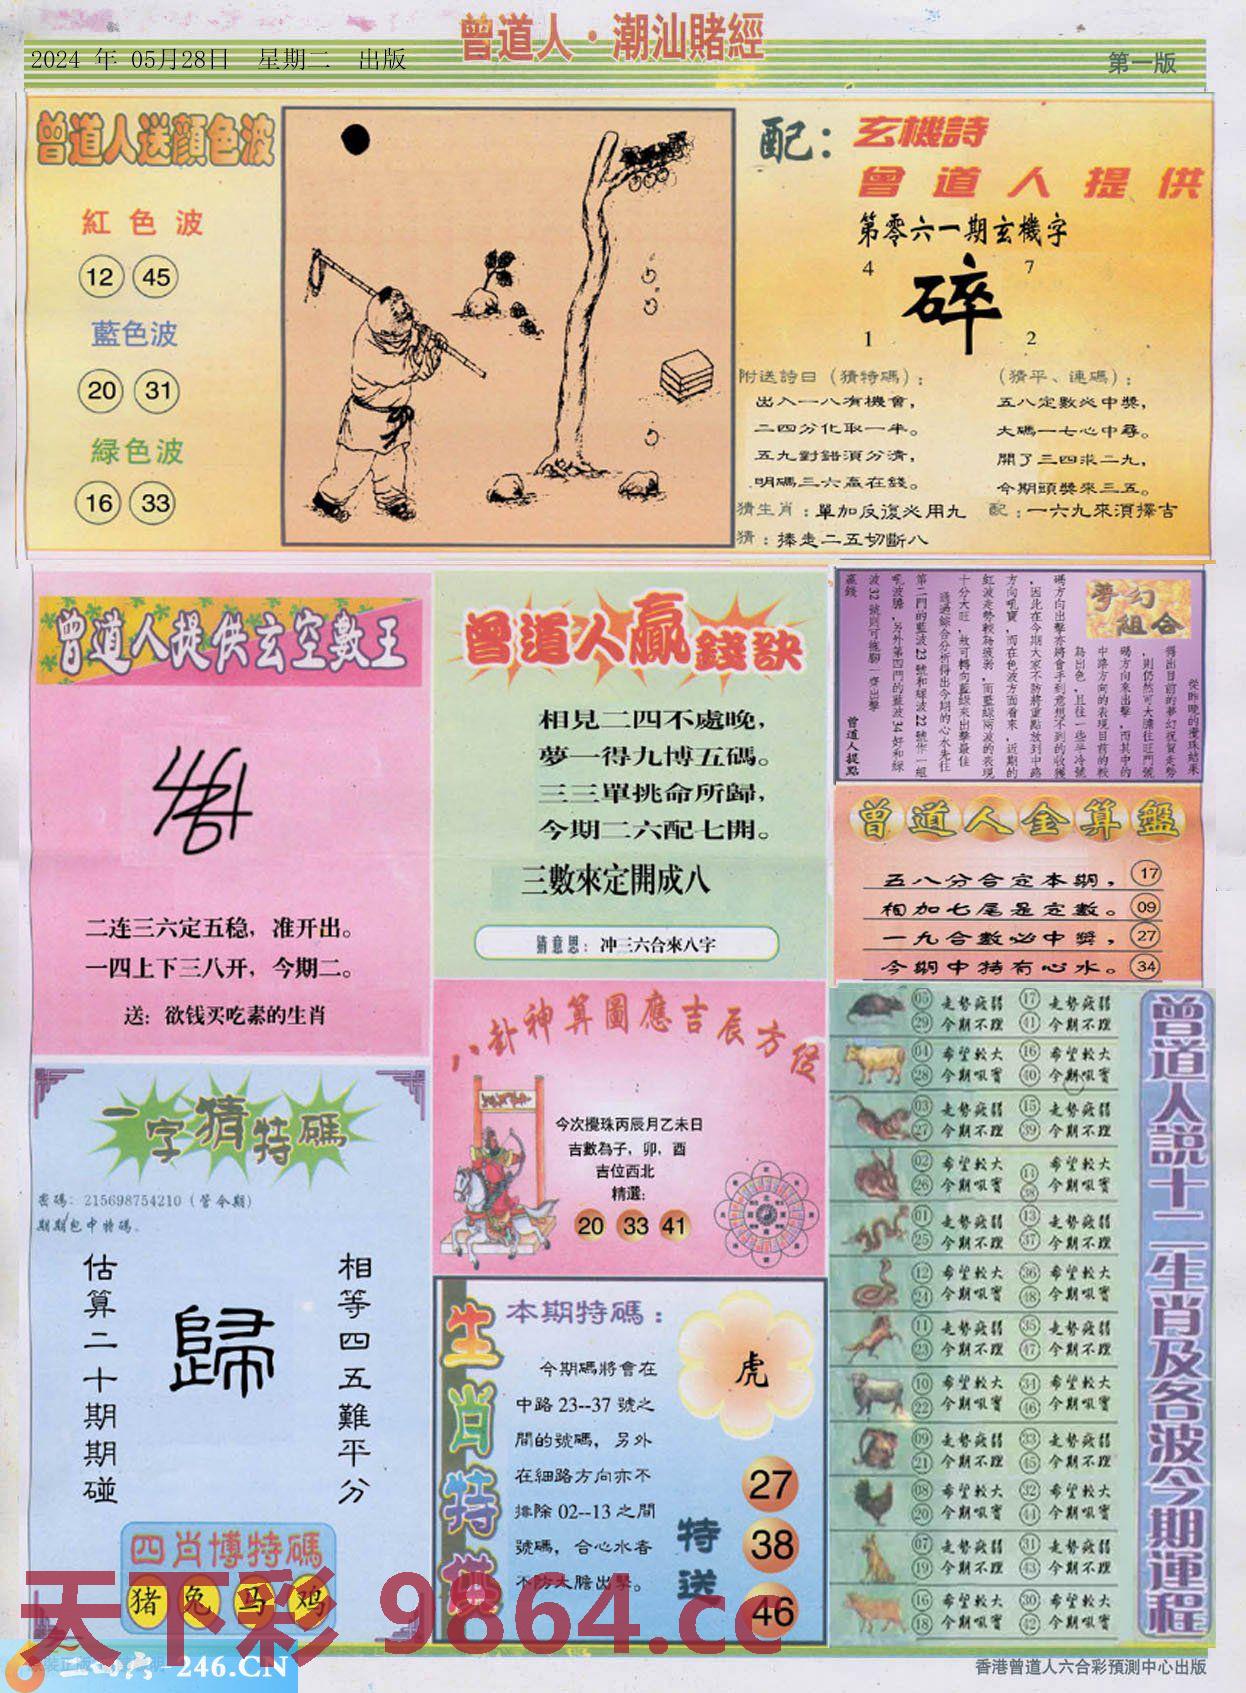 曾道人·潮汕賭經
2024 年 05月28日 星期二 出版
第一版
曾道人送顔色波
紅色波
12 45
藍色波
20 31
緑色波
16 33
配：玄機詩
曾道人提供
第零六一期玄機字
4 7
碎
1 2
附送詩日（猜特碼）：
出入一八有機會，
二四分化取一半。
五九對錯須分清，
明碼三六贏在錢。
（猜平、連碼）：
五八定數必中獎，
大碼一七心中尋。
開了三四求二九，
今期頭獎來三五。
猜生肖：單加反復必用九
配：一六九來須擇吉
猜：捧走二五切斷八
曾道人提供玄空數王
二连三六定五稳，准开出。
一四上下三八开，今期二。
送：欲钱买吃素的生肖
曾道人贏錢訣
相見二四不處晚，
夢一得九博五碼。
三三單挑命所歸，
今期二六配七開。
三數來定開成八
猜意思：冲三六合來八字
夢幻組合
從昨晚的攪珠結果
得出目前的夢幻祝賀走勢
，則仍然可大膽往旺門號
碼方向來出擊，而其中的
中路方向的表現目前的較
為出色，且往一些半冷號
碼方向出擊亦將會手到意想不到的收獲
，因此在今期大家不防將重點放到中路
方向吼寶，而在色波方面看來，近期的
紅波走勢較為疲弱，而藍綠兩波的表現
十分大旺，故可轉向藍綠來出擊最佳
透過綜合分析得出今期的心水先往
第二門的藍波23號和綠波22號作一組
吼波膽，另外第四門的藍波34好和綠
波32號則可拖腳一齊出擊
贏錢
曾道人提點
曾道人金算盤
五八分合定本期， 17
相加七尾是定數。 09
一九合數必中獎， 27
今期中特有心水。 34
一字猜特碼
密碼：215698754210（管今期）
期期包中特碼.
估算二十期期碰
歸
相等四五難平分
四肖博特碼
猪 兔 马 鸡
八卦神算圖應吉辰方位
今次攪珠丙辰月乙未日
吉數為子，卯，酉
吉位西北
精選：
20 33 41
生肖特供
本期特碼：
今期碼將會在
中路 23--37 號之
間的號碼，另外
在細路方向亦不
排除 02--13 之間
號碼，合心水者
不防大膽出擊。
虎
特送
27
38
46
曾道人説十二生肖及各波今期運程
05 走勢疲弱 17 走勢疲弱
29 今期不理 41 今期不理
04 希望較大 16 希望較大
28 今期吼寶 40 今期吼寶
03 走勢疲弱 15 走勢疲弱
27 今期不理 39 今期不理
02 希望較大 14 希望較大
26 今期吼寶 38 今期吼寶
01 走勢疲弱 13 走勢疲弱
25 今期不理 37 今期不理
12 希望較大 36 希望較大
24 今期吼寶 48 今期吼寶
11 走勢疲弱 35 走勢疲弱
23 今期不理 47 今期不理
10 希望較大 34 希望較大
22 今期吼寶 46 今期吼寶
09 走勢疲弱 33 走勢疲弱
21 今期不理 45 今期不理
08 希望較大 32 希望較大
20 今期吼寶 44 今期吼寶
07 走勢疲弱 31 走勢疲弱
19 今期不理 43 今期不理
16 希望較大 30 希望較大
18 今期吼寶 42 今期吼寶
天下彩 9864.cc
二四六-246.CN
香港曾道人六合彩預測中心出版